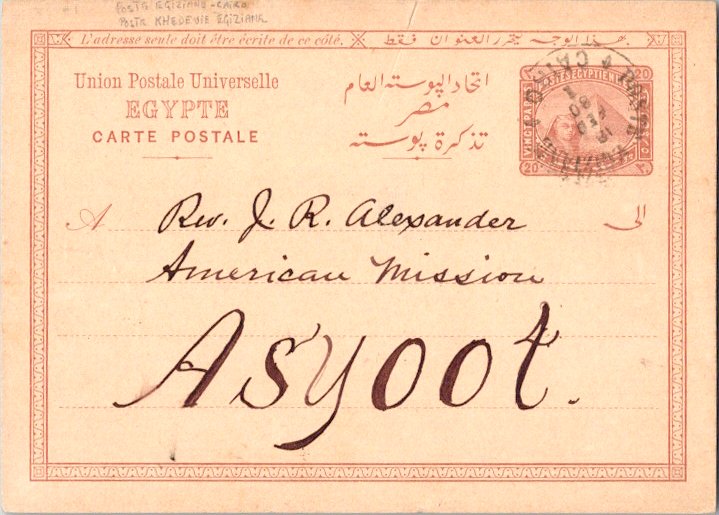 POSTA EGIZIANO-CAIRO
POSTE KHEDEVIE EGIZIANE
L'adresse seule doit être écrite de ce côté.
بهذا الوجه يتحرر العنوان فقط
Union Postale Universelle
EGYPTE
CARTE POSTALE
اتحاد البوسته العام
مصر
تذكرة بوسته
POSTES EGYPTIENNES
20
20
VING PARA
20
٢٠
POSTE
CAIRO
FEB
80
A
الى
Rev. J. R. Alexander
American Mission
Asyoot.